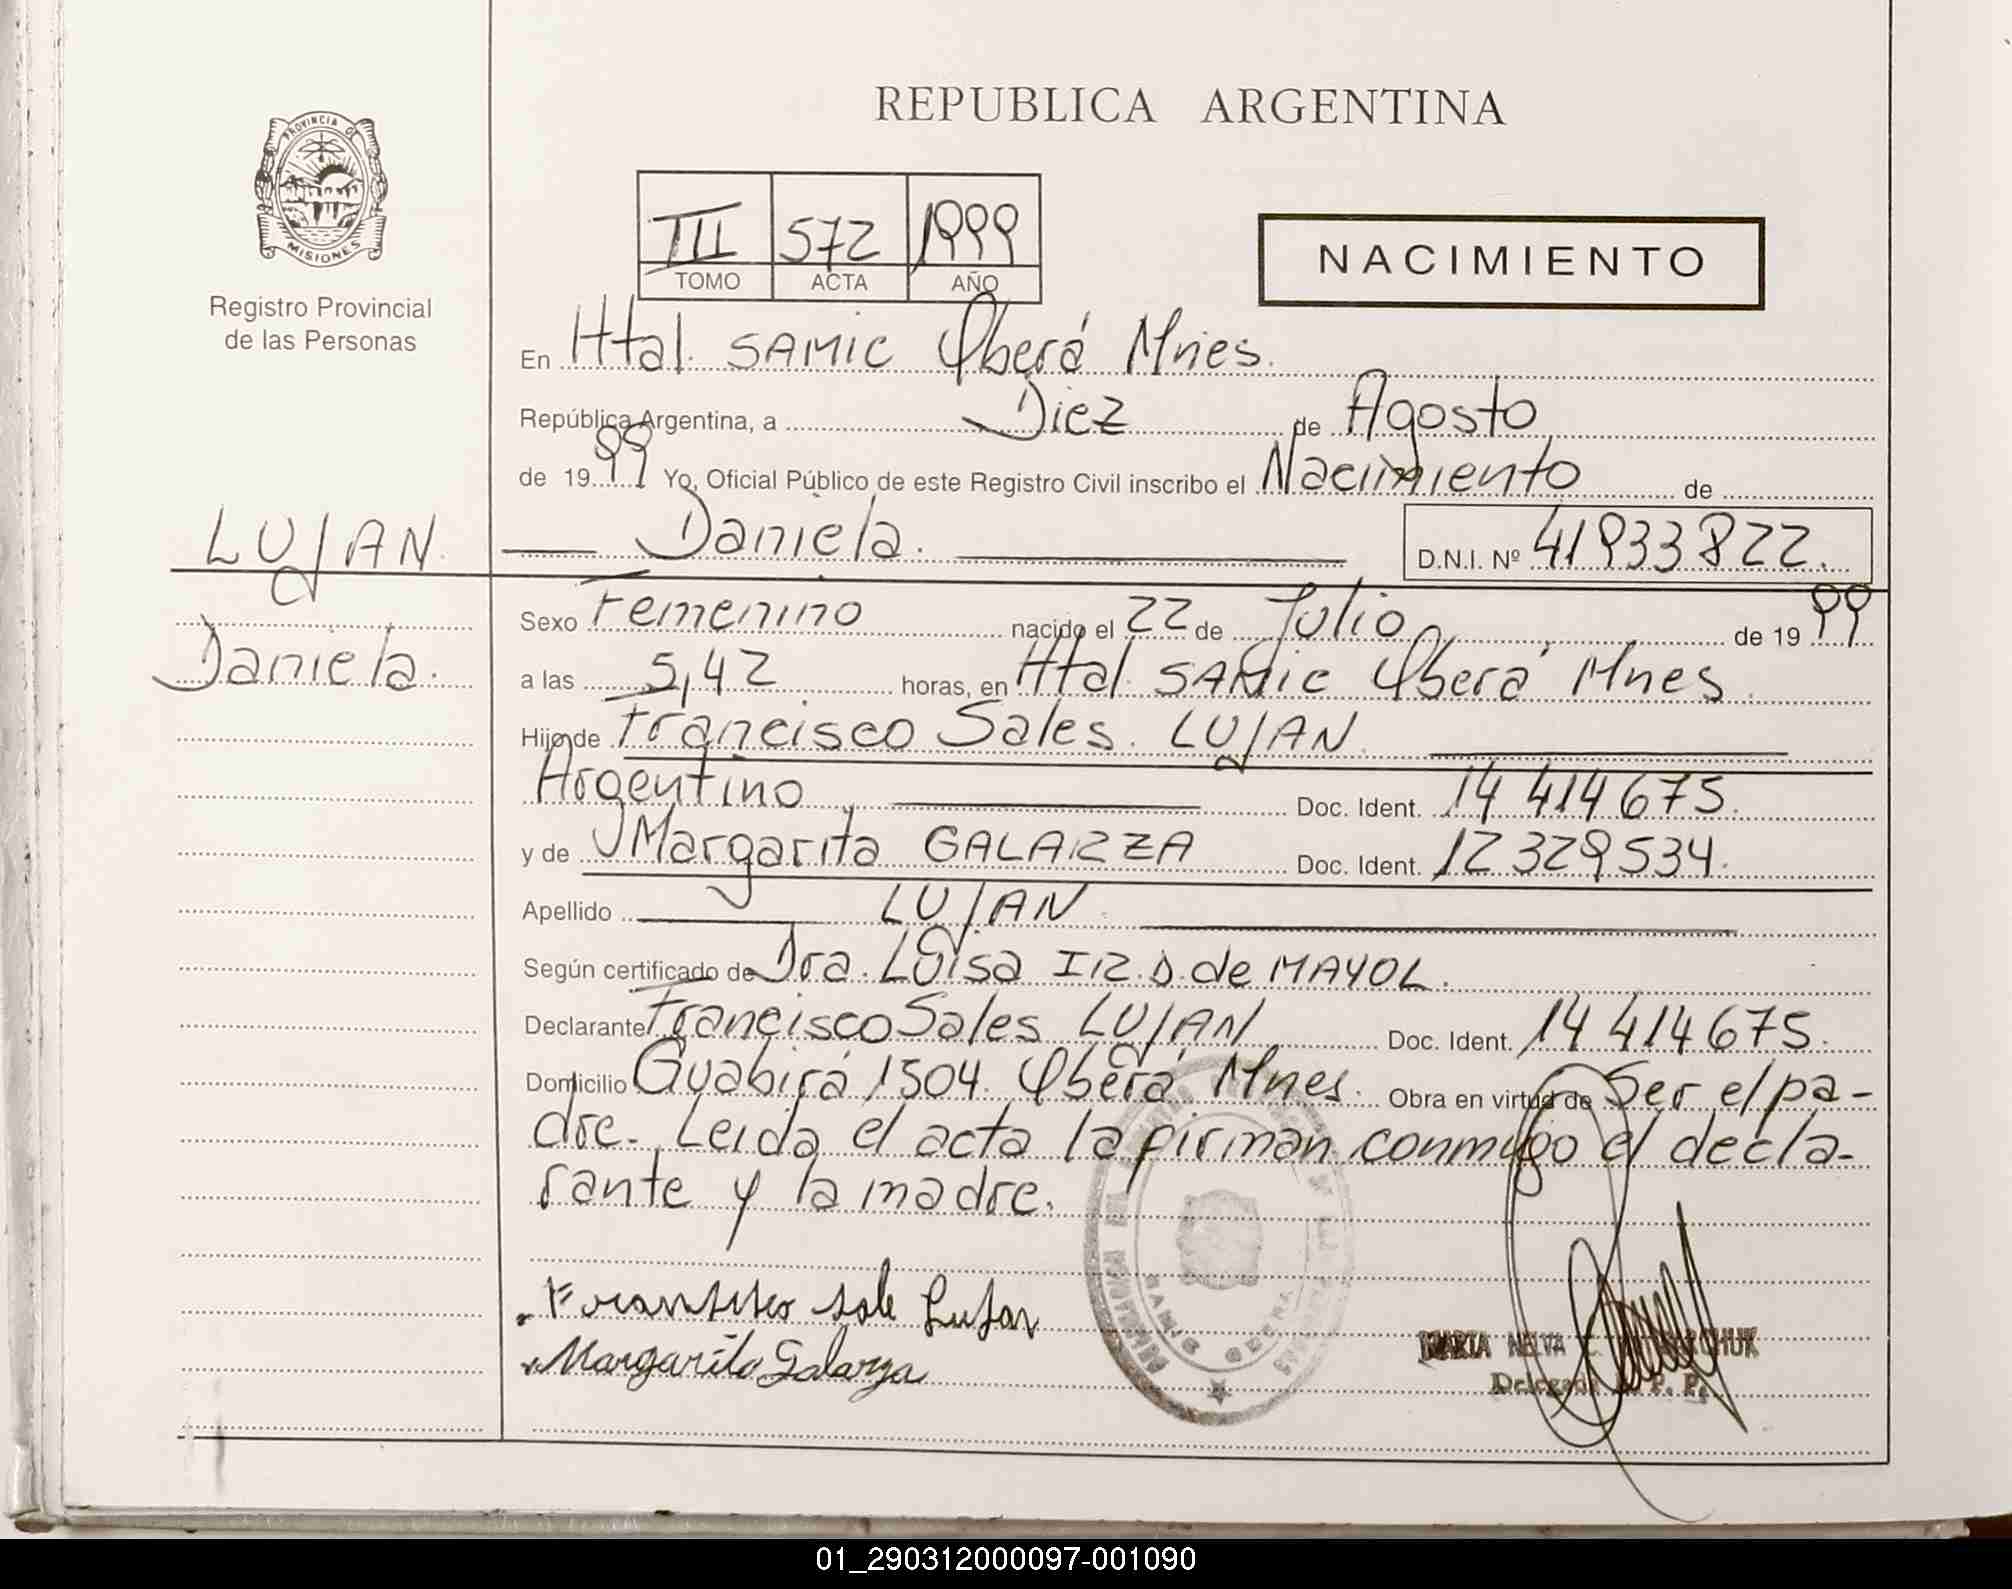 REPUBLICA ARGENTINA
PROVINCIA DE
MISIONES
Registro Provincial
de las Personas
III 572 1999
TOMO ACTA AÑO
NACIMIENTO
En Htal. SAMIC Oberá Mnes.
República Argentina, a Diez de Agosto
de 1999 Yo, Oficial Público de este Registro Civil inscribo el Nacimiento de
LUJAN
Daniela.
Daniela. D.N.I. Nº 41933822.
Sexo Femenino nacido el 22 de Julio de 1999
a las 5,42 horas, en Htal SAMic Oberá Mnes.
Hijo de Francisco Sales. LUJAN
Argentino Doc. Ident. 14 414 675.
y de Margarita GALARZA Doc. Ident. 12 329 534.
Apellido LUJAN
Según certificado de Dra. Luisa IR. D. de MAYOL.
Declarante Francisco Sales LUJAN Doc. Ident. 14 414 675.
Domicilio Guabirá 1504. Oberá Mnes. Obra en virtud de Ser el pa-
dre. Leida el acta la firman conmigo el decla-
rante y la madre.
Fransisco sale Lujan
Margarita Galarza
MARTA NELVA
Delegada P. P.
SAMIC OBERA
01_290312000097-001090